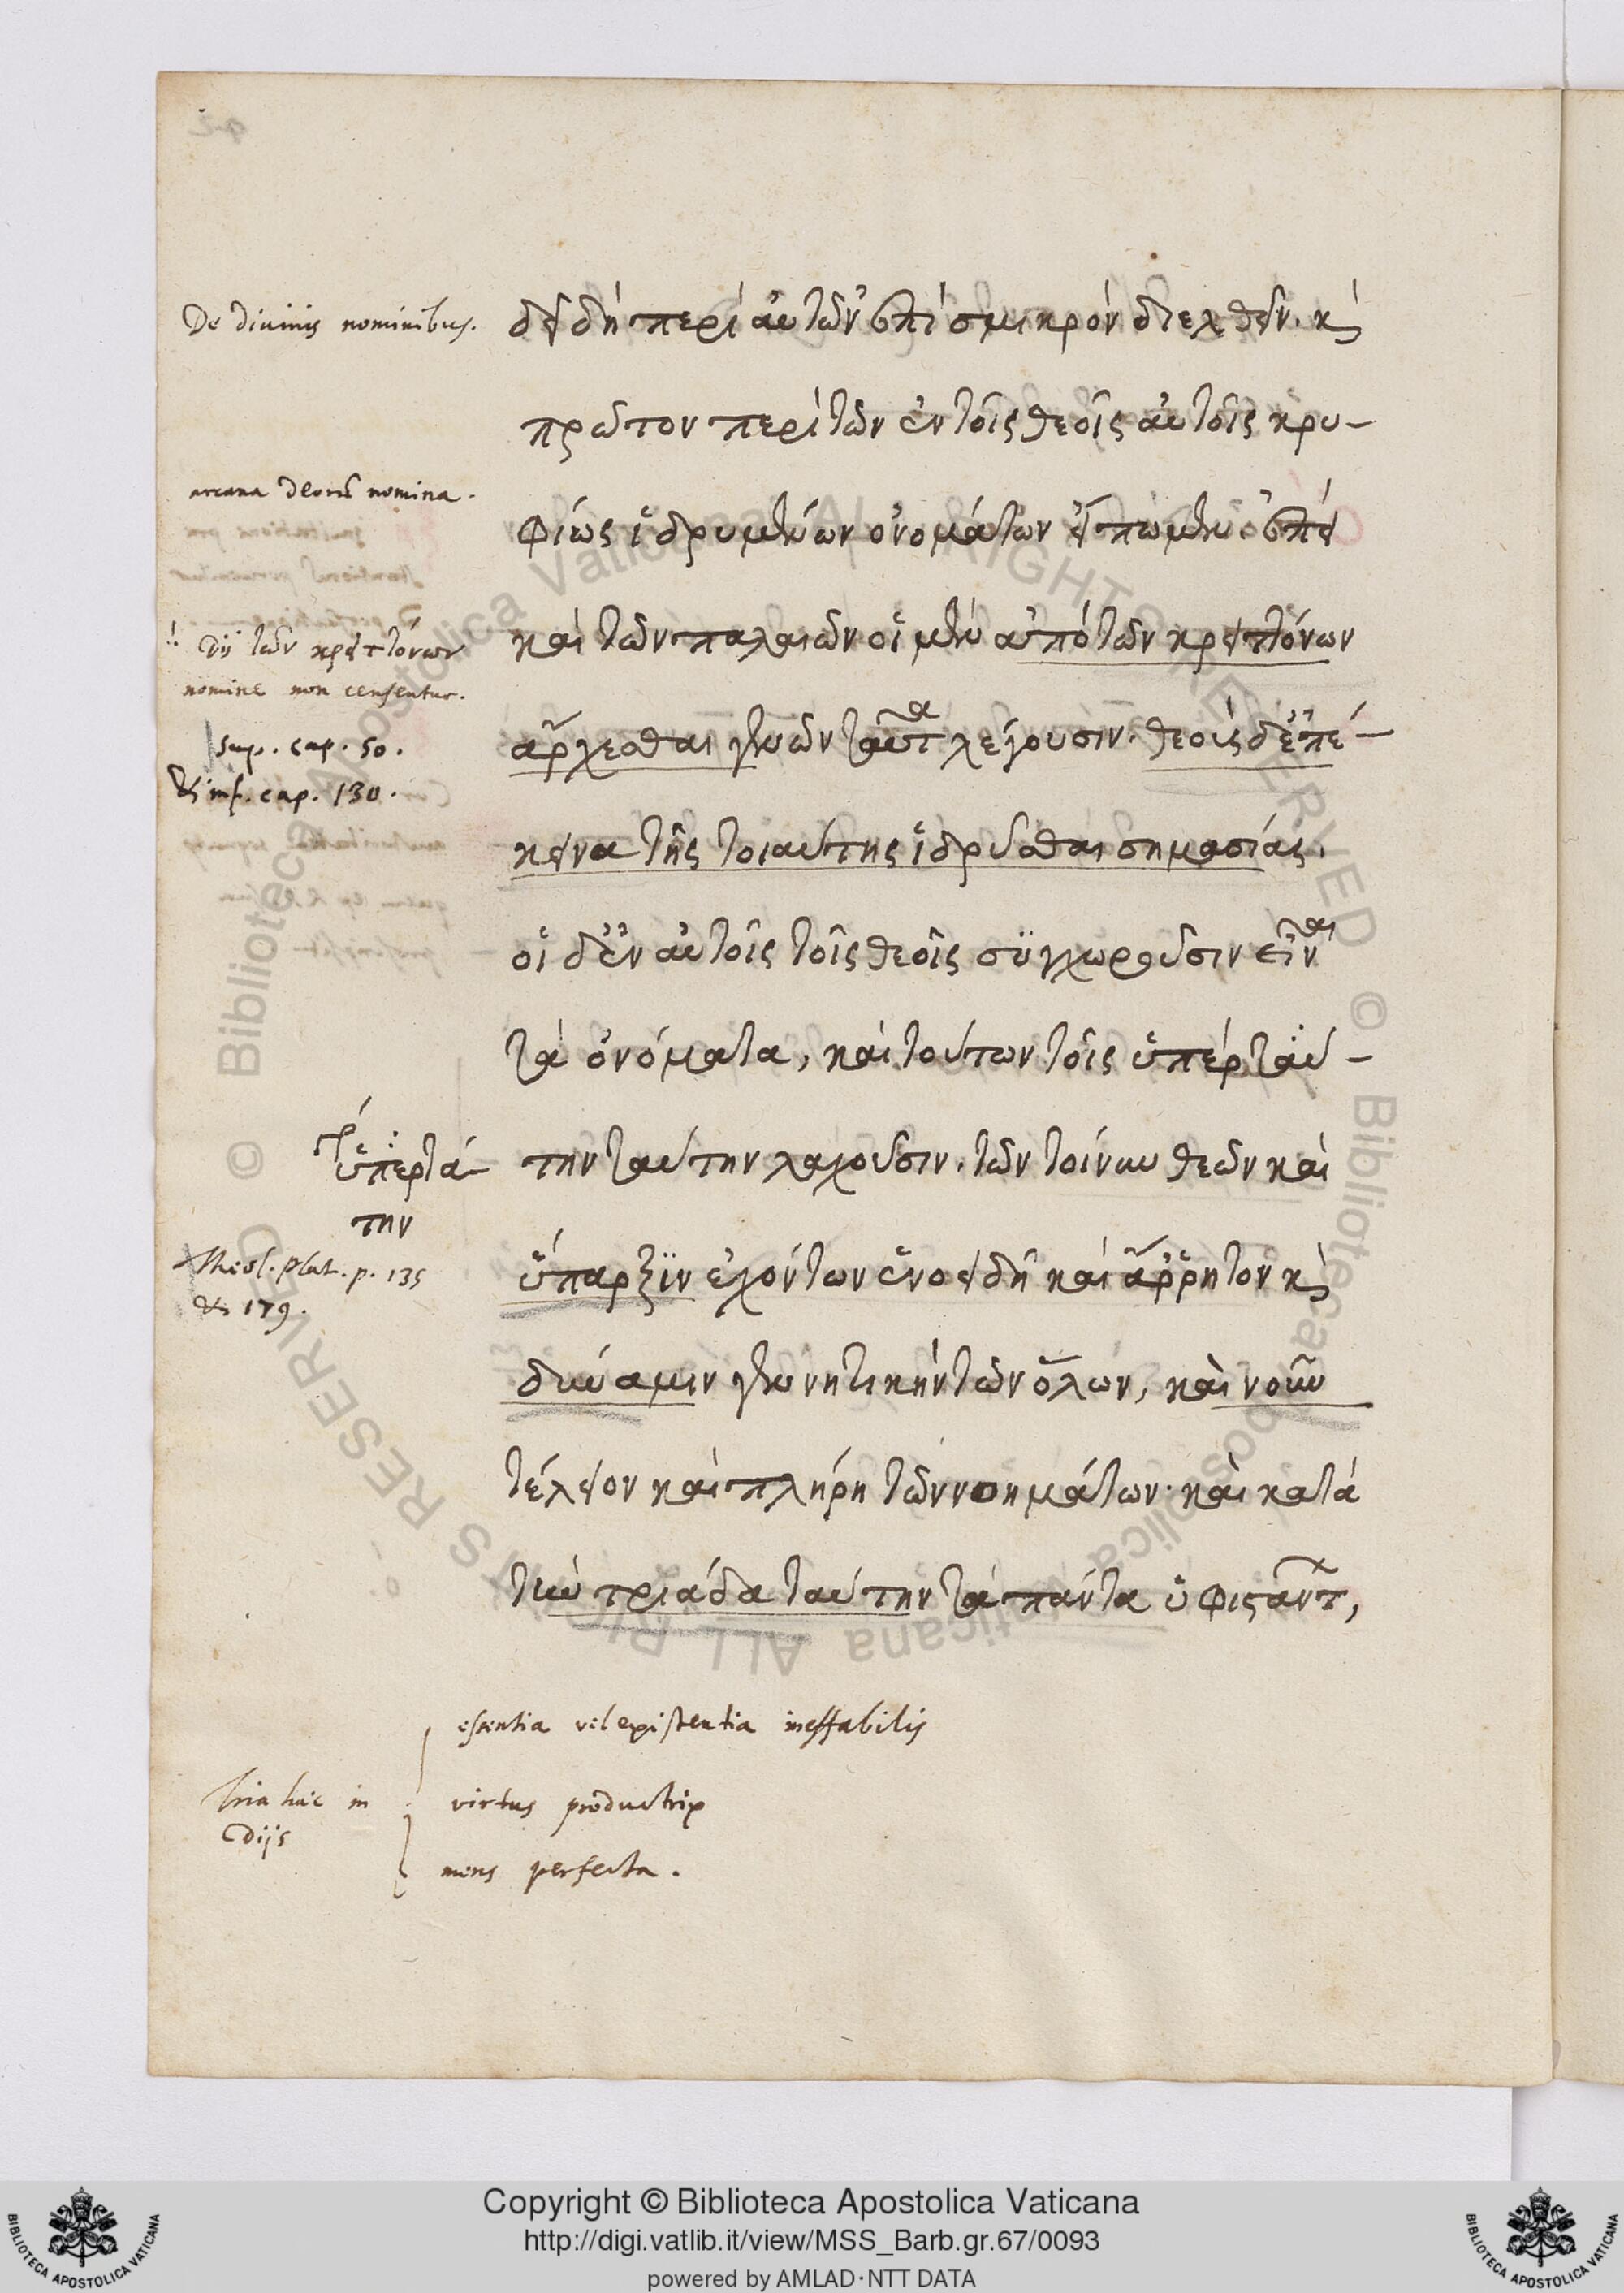 De divinis nominibus.
δεῖ δὴ περὶ αὐτῶν ἐπὶ σμικρὸν διελθεῖν. κ̀
πρῶτον περὶ τῶν ἐν τοῖς θεοῖς αὐτοῖς κρυ-
arcana deorũ nomina.
φίως ἱδρυμένων ὀνομάτων εἴπωμεν. ἐπεὶ
καὶ τῶν παλαιῶν οἱ μὲν ἀπὸ τῶν κρειττόνων
Dij τῶν κρειττόνων
nomine non censentur.
ἄρχεσθαι γενῶν ταῦτα λέγουσιν. θεοὺς δὲ ἐπέ-
sup. cap. 50.
& inf. cap. 130.
κεινα τῆς τοιαύτης ἱδρύσθαι σημασίας.
οἱ δὲ ἐν αὐτοῖς τοῖς θεοῖς συγχωροῦσιν εἶναι
τὰ ὀνόματα, καὶ τούτων τοῖς ὑπὲρ ταύ-
την ταύτην λαχοῦσιν. τῶν τοίνυν θεῶν καὶ
ὑπερτά-
την
ὕπαρξιν ἐχόντων ἑνοειδῆ καὶ ἄρρητον κ̀
Theol. Plat. p. 135
& 179.
δύναμιν γεννητικὴν τῶν ὅλων, καὶ νοῦν
τέλειον καὶ πλήρη τῶν νοημάτων. καὶ κατὰ
τὴν τριάδα ταύτην τὰ πάντα ὑφιστάντ,
Tria haec in
Dijs
essentia vel existentia ineffabilis
virtus productrix
mens perfecta.
Copyright © Biblioteca Apostolica Vaticana
http://digi.vatlib.it/view/MSS_Barb.gr.67/0093
powered by AMLAD·NTT DATA